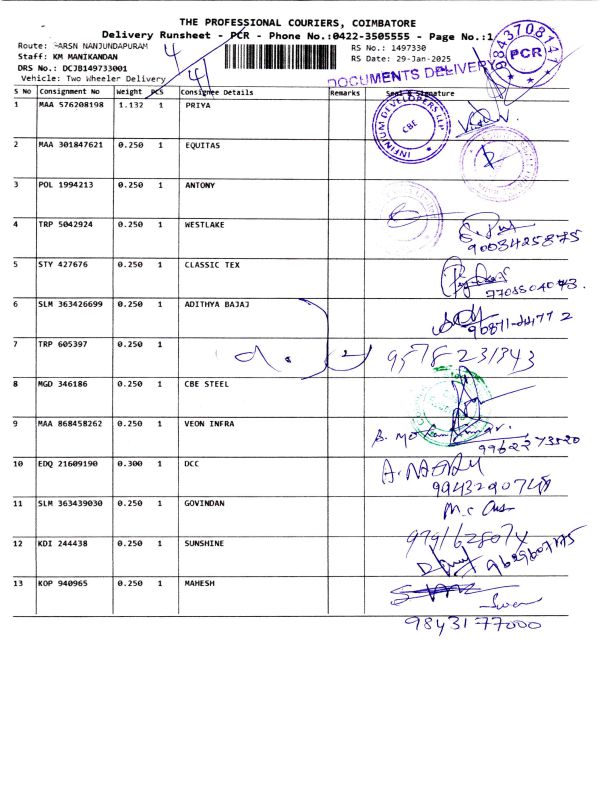 THE PROFESSIONAL COURIERS, COIMBATORE
Delivery Runsheet - PCR - Phone No.:0422-3505555 - Page No.:1
Route: PARSN NANJUNDAPURAM
RS No.: 1497330
Staff: KM MANIKANDAN
RS Date: 29-Jan-2025
DRS No.: DCJB149733001
Vehicle: Two Wheeler Delivery
4
4
DOCUMENTS DELIVERY
9843708141
PCR
S No Consignment No Weight PCS Consignee Details Remarks Seal & Signature
1 MAA 576208198 1.132 1 PRIYA
INFINUM DEVELOPERS LLP
CBE
2 MAA 301847621 0.250 1 EQUITAS
3 POL 1994213 0.250 1 ANTONY
4 TRP 5042924 0.250 1 WESTLAKE
9003425875
5 STY 427676 0.250 1 CLASSIC TEX
6 SLM 363426699 0.250 1 ADITHYA BAJAJ
7 TRP 605397 0.250 1
9578231343
8 MGD 346186 0.250 1 CBE STEEL
9 MAA 868458262 0.250 1 VEON INFRA
9962273520
10 EDQ 21609190 0.300 1 DCC
9943290748
11 SLM 363439030 0.250 1 GOVINDAN
12 KDI 244438 0.250 1 SUNSHINE
13 KOP 940965 0.250 1 MAHESH
9843177000